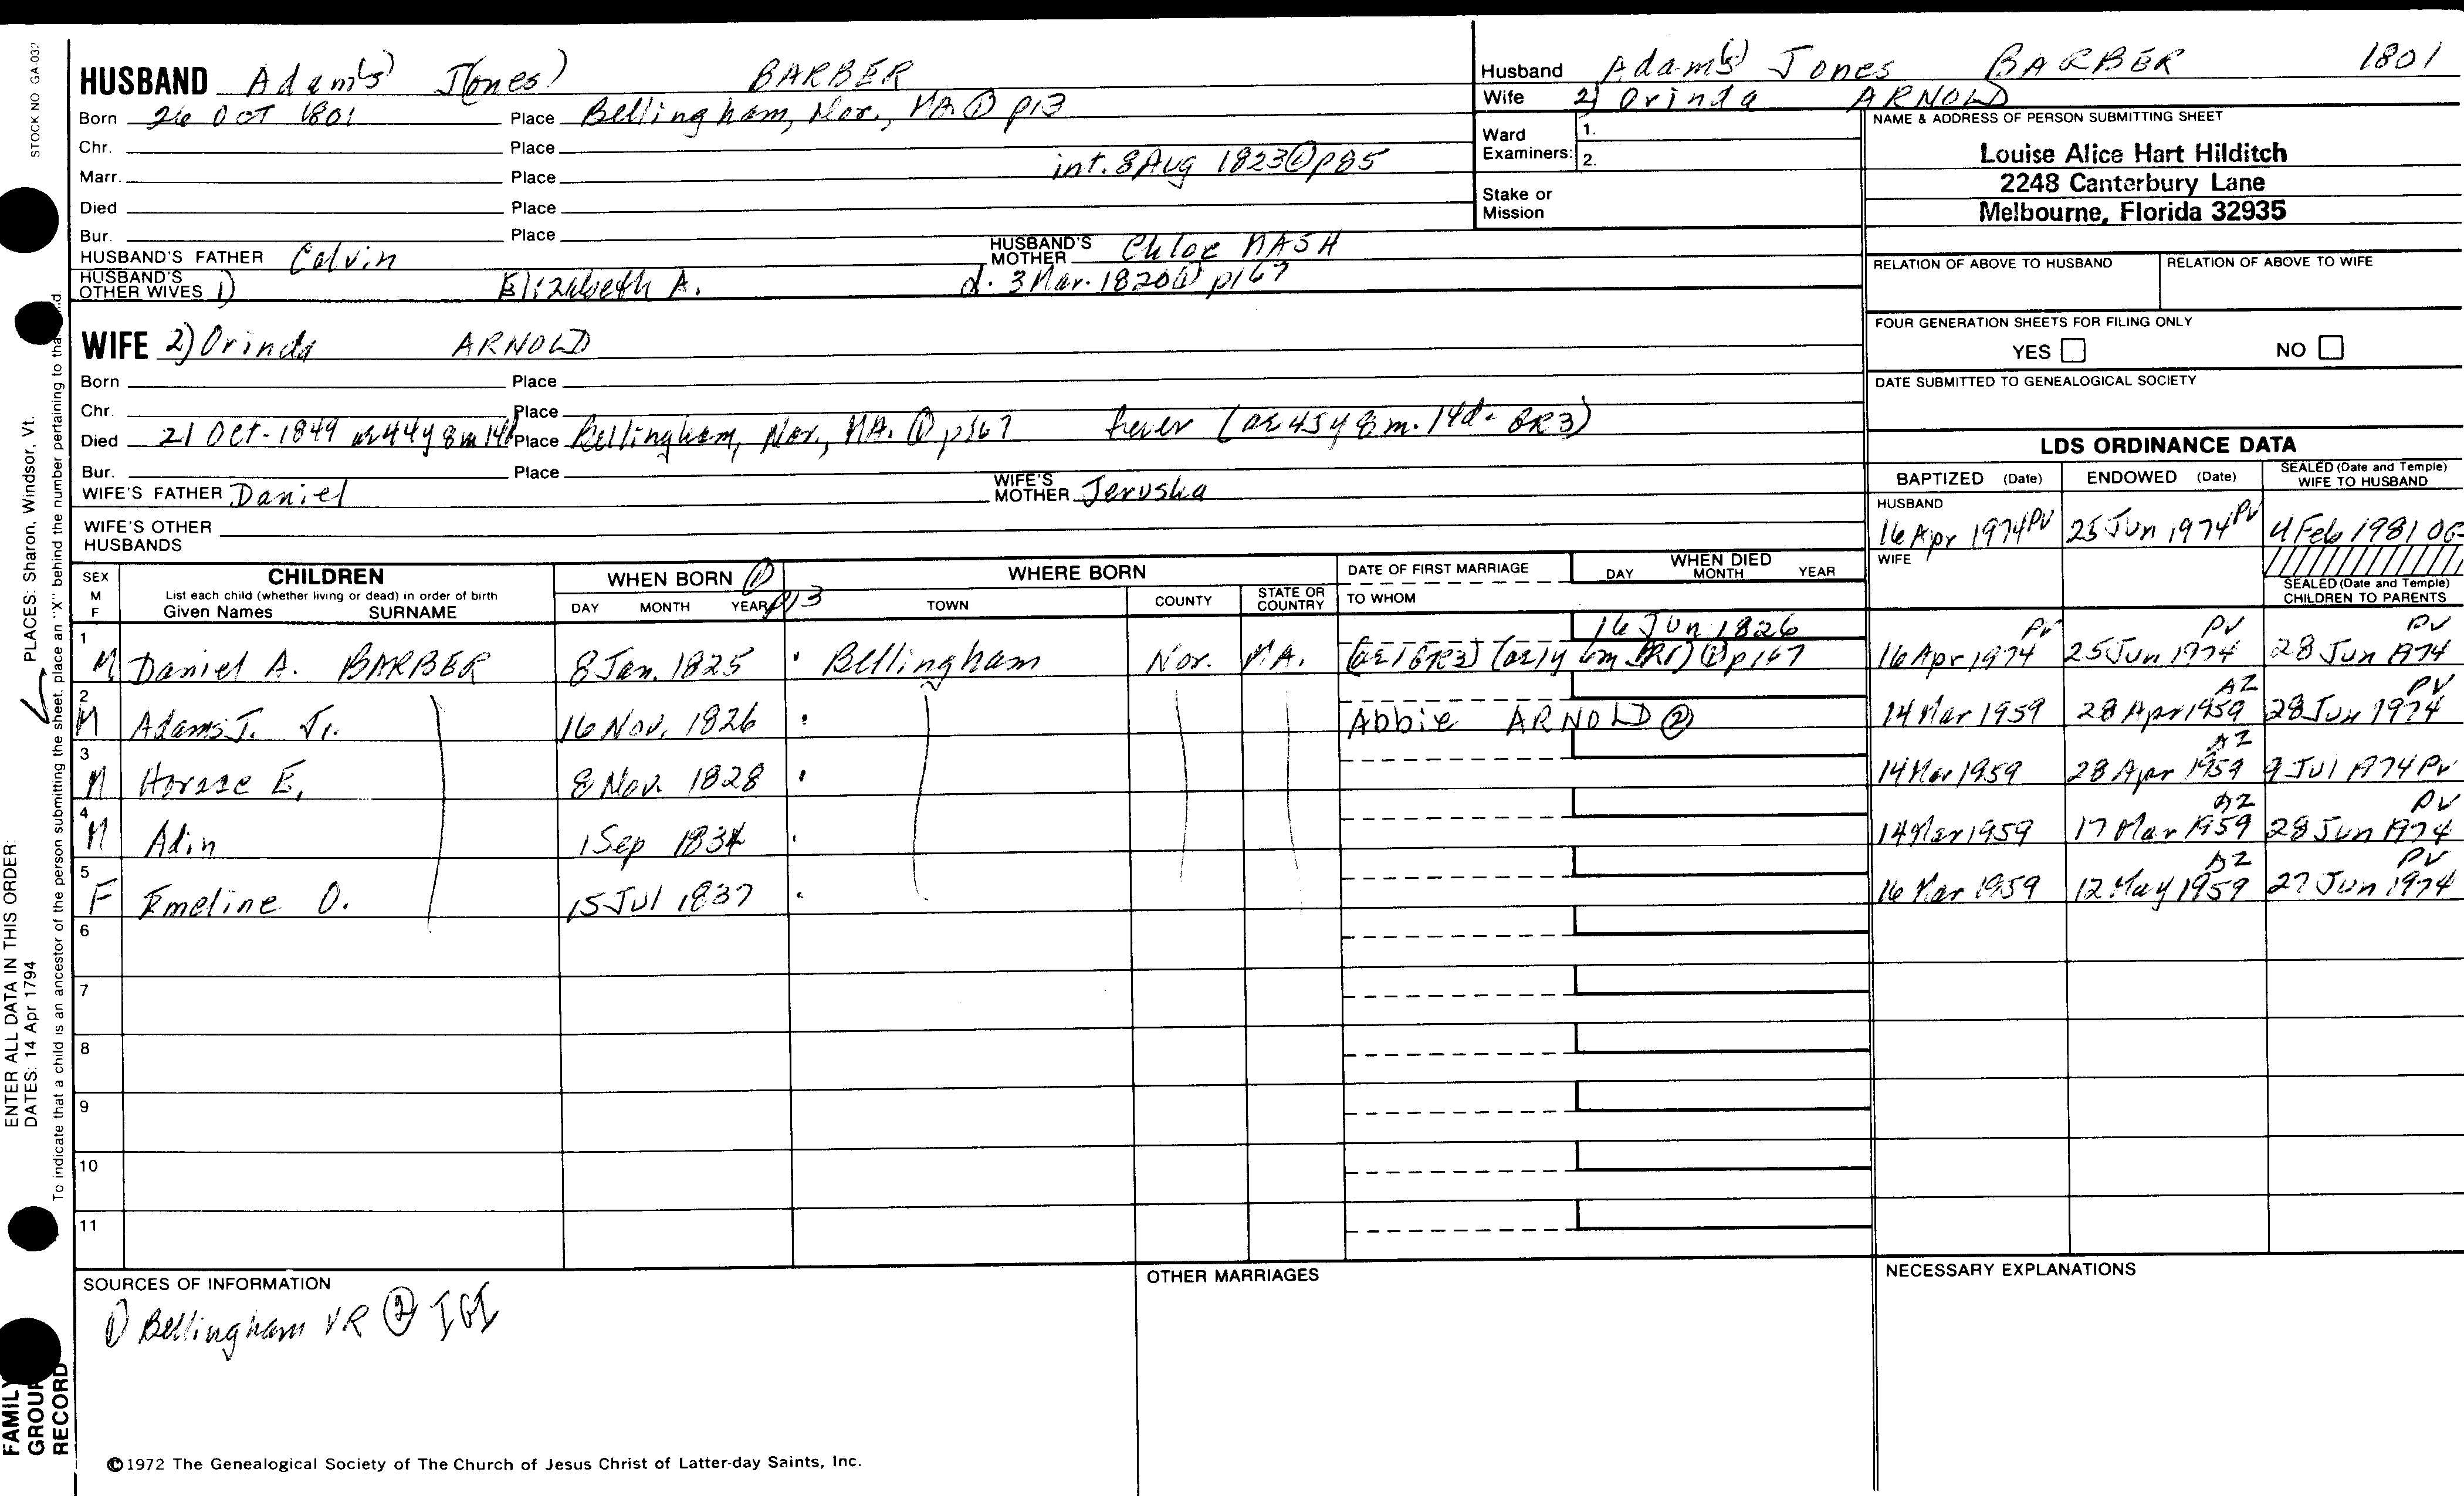 STOCK NO GA-032
HUSBAND Adam(s) J(ones) BARBER
Born 26 OCT 1801 Place Bellingham, Nor., MA ① p13
Chr. Place
Marr. Place int. 8 Aug 1823 ① p85
Died Place
Bur. Place
HUSBAND'S FATHER Calvin HUSBAND'S MOTHER Chloe NASH
HUSBAND'S OTHER WIVES 1) Elizabeth A. d. 3 Mar. 1820 ① p167
WIFE 2) Orinda ARNOLD
Born Place
Chr. Place
Died 21 Oct. 1849 ae 44y 8m 14d Place Bellingham, Nor., MA. ① p167 fever (ae 45y 8m. 14d. GR3)
Bur. Place
WIFE'S FATHER Daniel WIFE'S MOTHER Jerusha
WIFE'S OTHER HUSBANDS
Husband Adam(s) Jones BARBER 1801
Wife 2) Orinda ARNOLD
Ward Examiners: 1.
2.
Stake or Mission
NAME & ADDRESS OF PERSON SUBMITTING SHEET
Louise Alice Hart Hilditch
2248 Canterbury Lane
Melbourne, Florida 32935
RELATION OF ABOVE TO HUSBAND RELATION OF ABOVE TO WIFE
FOUR GENERATION SHEETS FOR FILING ONLY
YES NO
DATE SUBMITTED TO GENEALOGICAL SOCIETY
LDS ORDINANCE DATA
BAPTIZED (Date) ENDOWED (Date) SEALED (Date and Temple) WIFE TO HUSBAND
HUSBAND 16 Apr 1974 PV 25 Jun 1974 PV 4 Feb 1981 OG
WIFE
SEALED (Date and Temple) CHILDREN TO PARENTS
SEX M F
CHILDREN
List each child (whether living or dead) in order of birth
Given Names SURNAME
WHEN BORN ① p13
DAY MONTH YEAR
WHERE BORN
TOWN COUNTY STATE OR COUNTRY
DATE OF FIRST MARRIAGE
TO WHOM
WHEN DIED
DAY MONTH YEAR
16 Jun 1826
1 M Daniel A. BARBER 8 Jan. 1825 Bellingham Nor. MA. (ae 1 GR3) (ae 1y 6m) ① p167 16 Apr 1974 PV 25 Jun 1974 PV 28 Jun 1974 PV
2 M Adams J. Jr. 16 Nov. 1826 Abbie ARNOLD ② 14 Mar 1959 28 Apr 1959 AZ 28 Jun 1974 PV
3 M Horace E. 8 Nov. 1828 14 Mar 1959 28 Apr 1959 AZ 9 Jul 1974 PV
4 M Adin 1 Sep 1834 14 Mar 1959 17 Mar 1959 AZ 28 Jun 1974 PV
5 F Emeline O. 15 Jul 1837 16 Mar 1959 12 May 1959 AZ 27 Jun 1974 PV
6
7
8
9
10
11
SOURCES OF INFORMATION
① Bellingham VR ② IGI
OTHER MARRIAGES
NECESSARY EXPLANATIONS
©1972 The Genealogical Society of The Church of Jesus Christ of Latter-day Saints, Inc.
ENTER ALL DATA IN THIS ORDER:
DATES: 14 Apr 1794 PLACES: Sharon, Windsor, Vt.
To indicate that a child is an ancestor of the person submitting the sheet, place an "X" behind the number pertaining to that
FAMILY GROUP RECORD